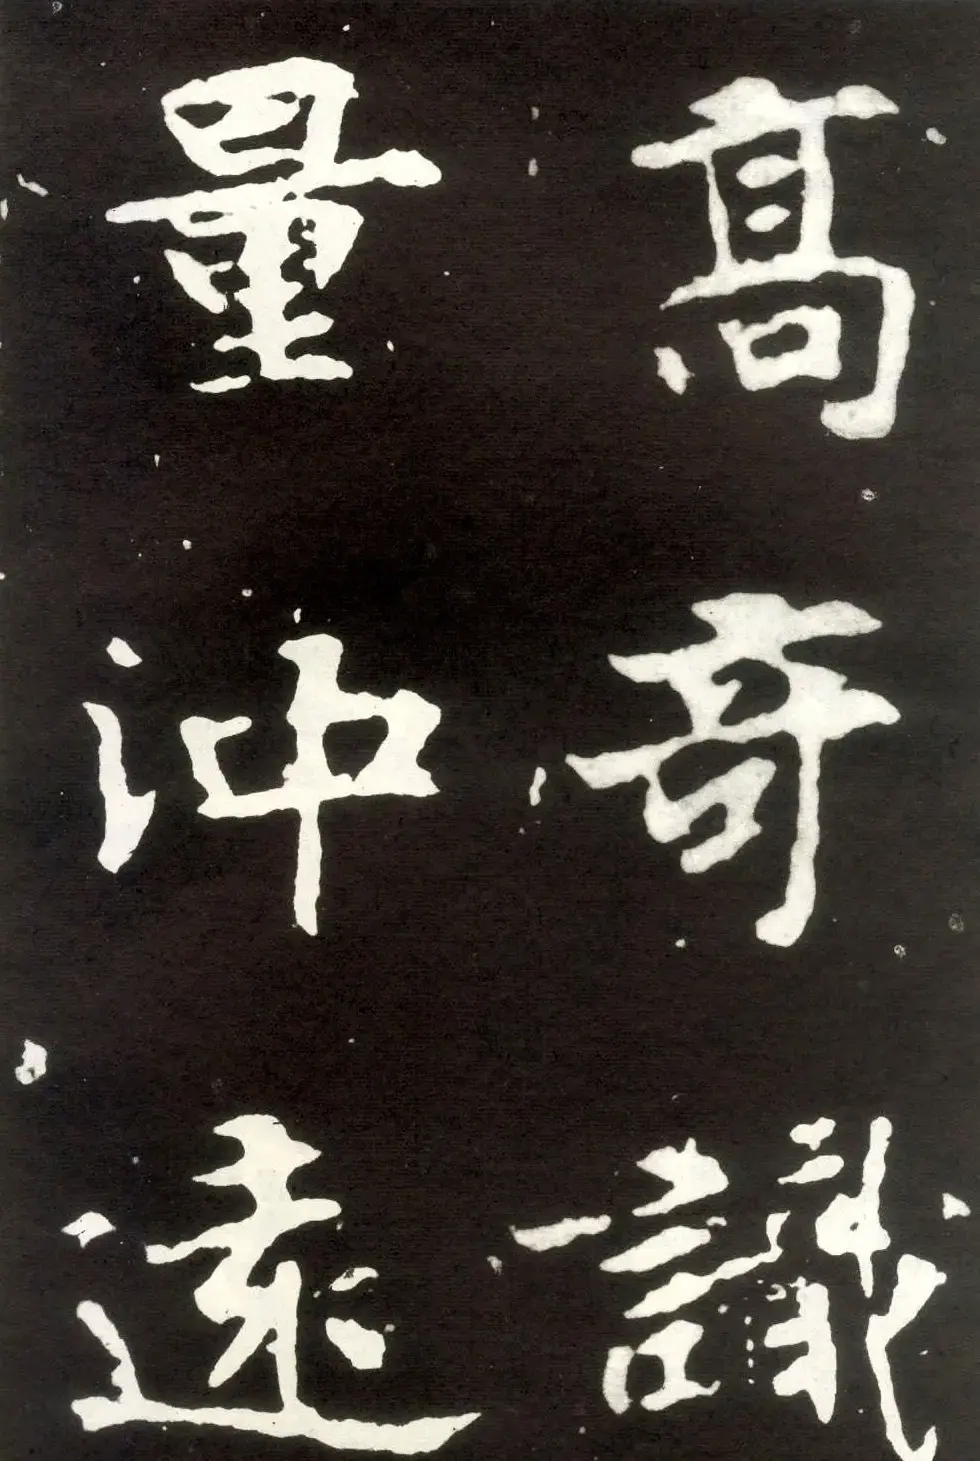 高奇識
量沖遠